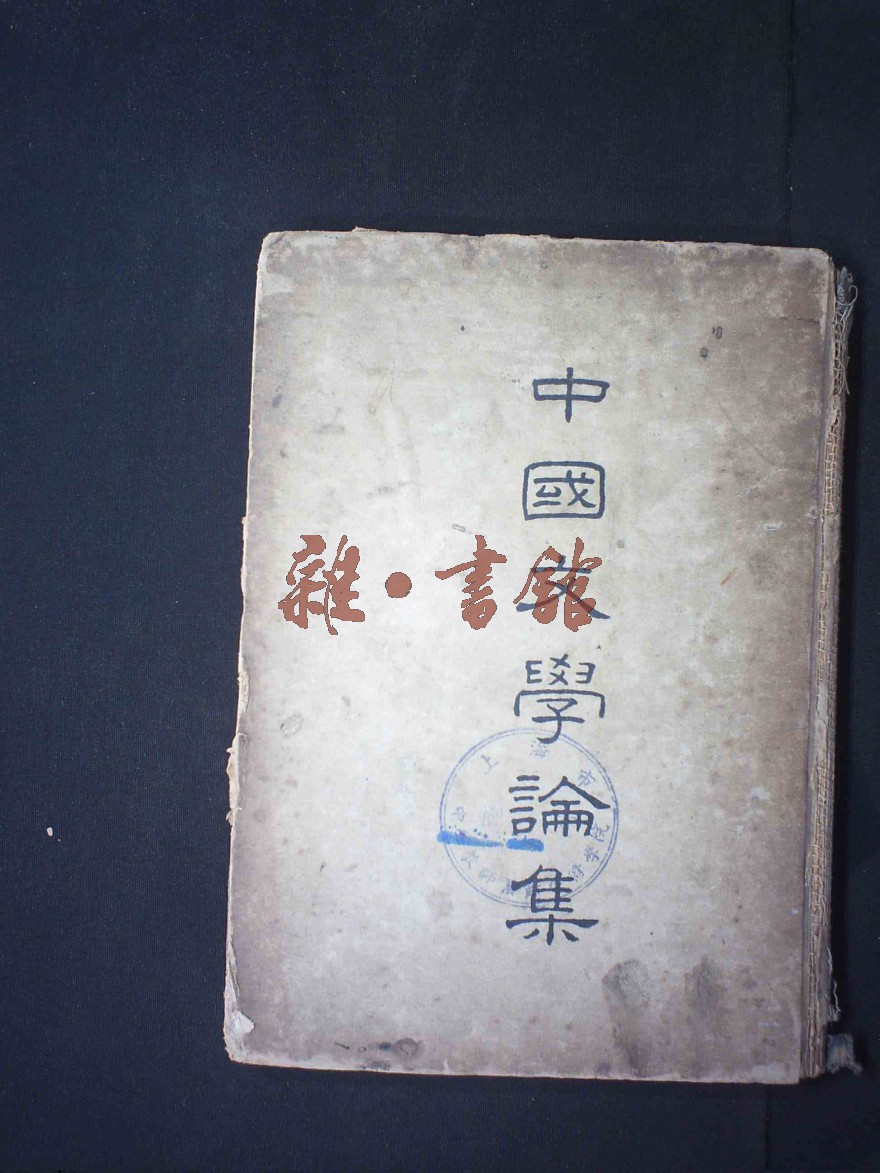 中國文學論集
雜·書館
上海市
學院